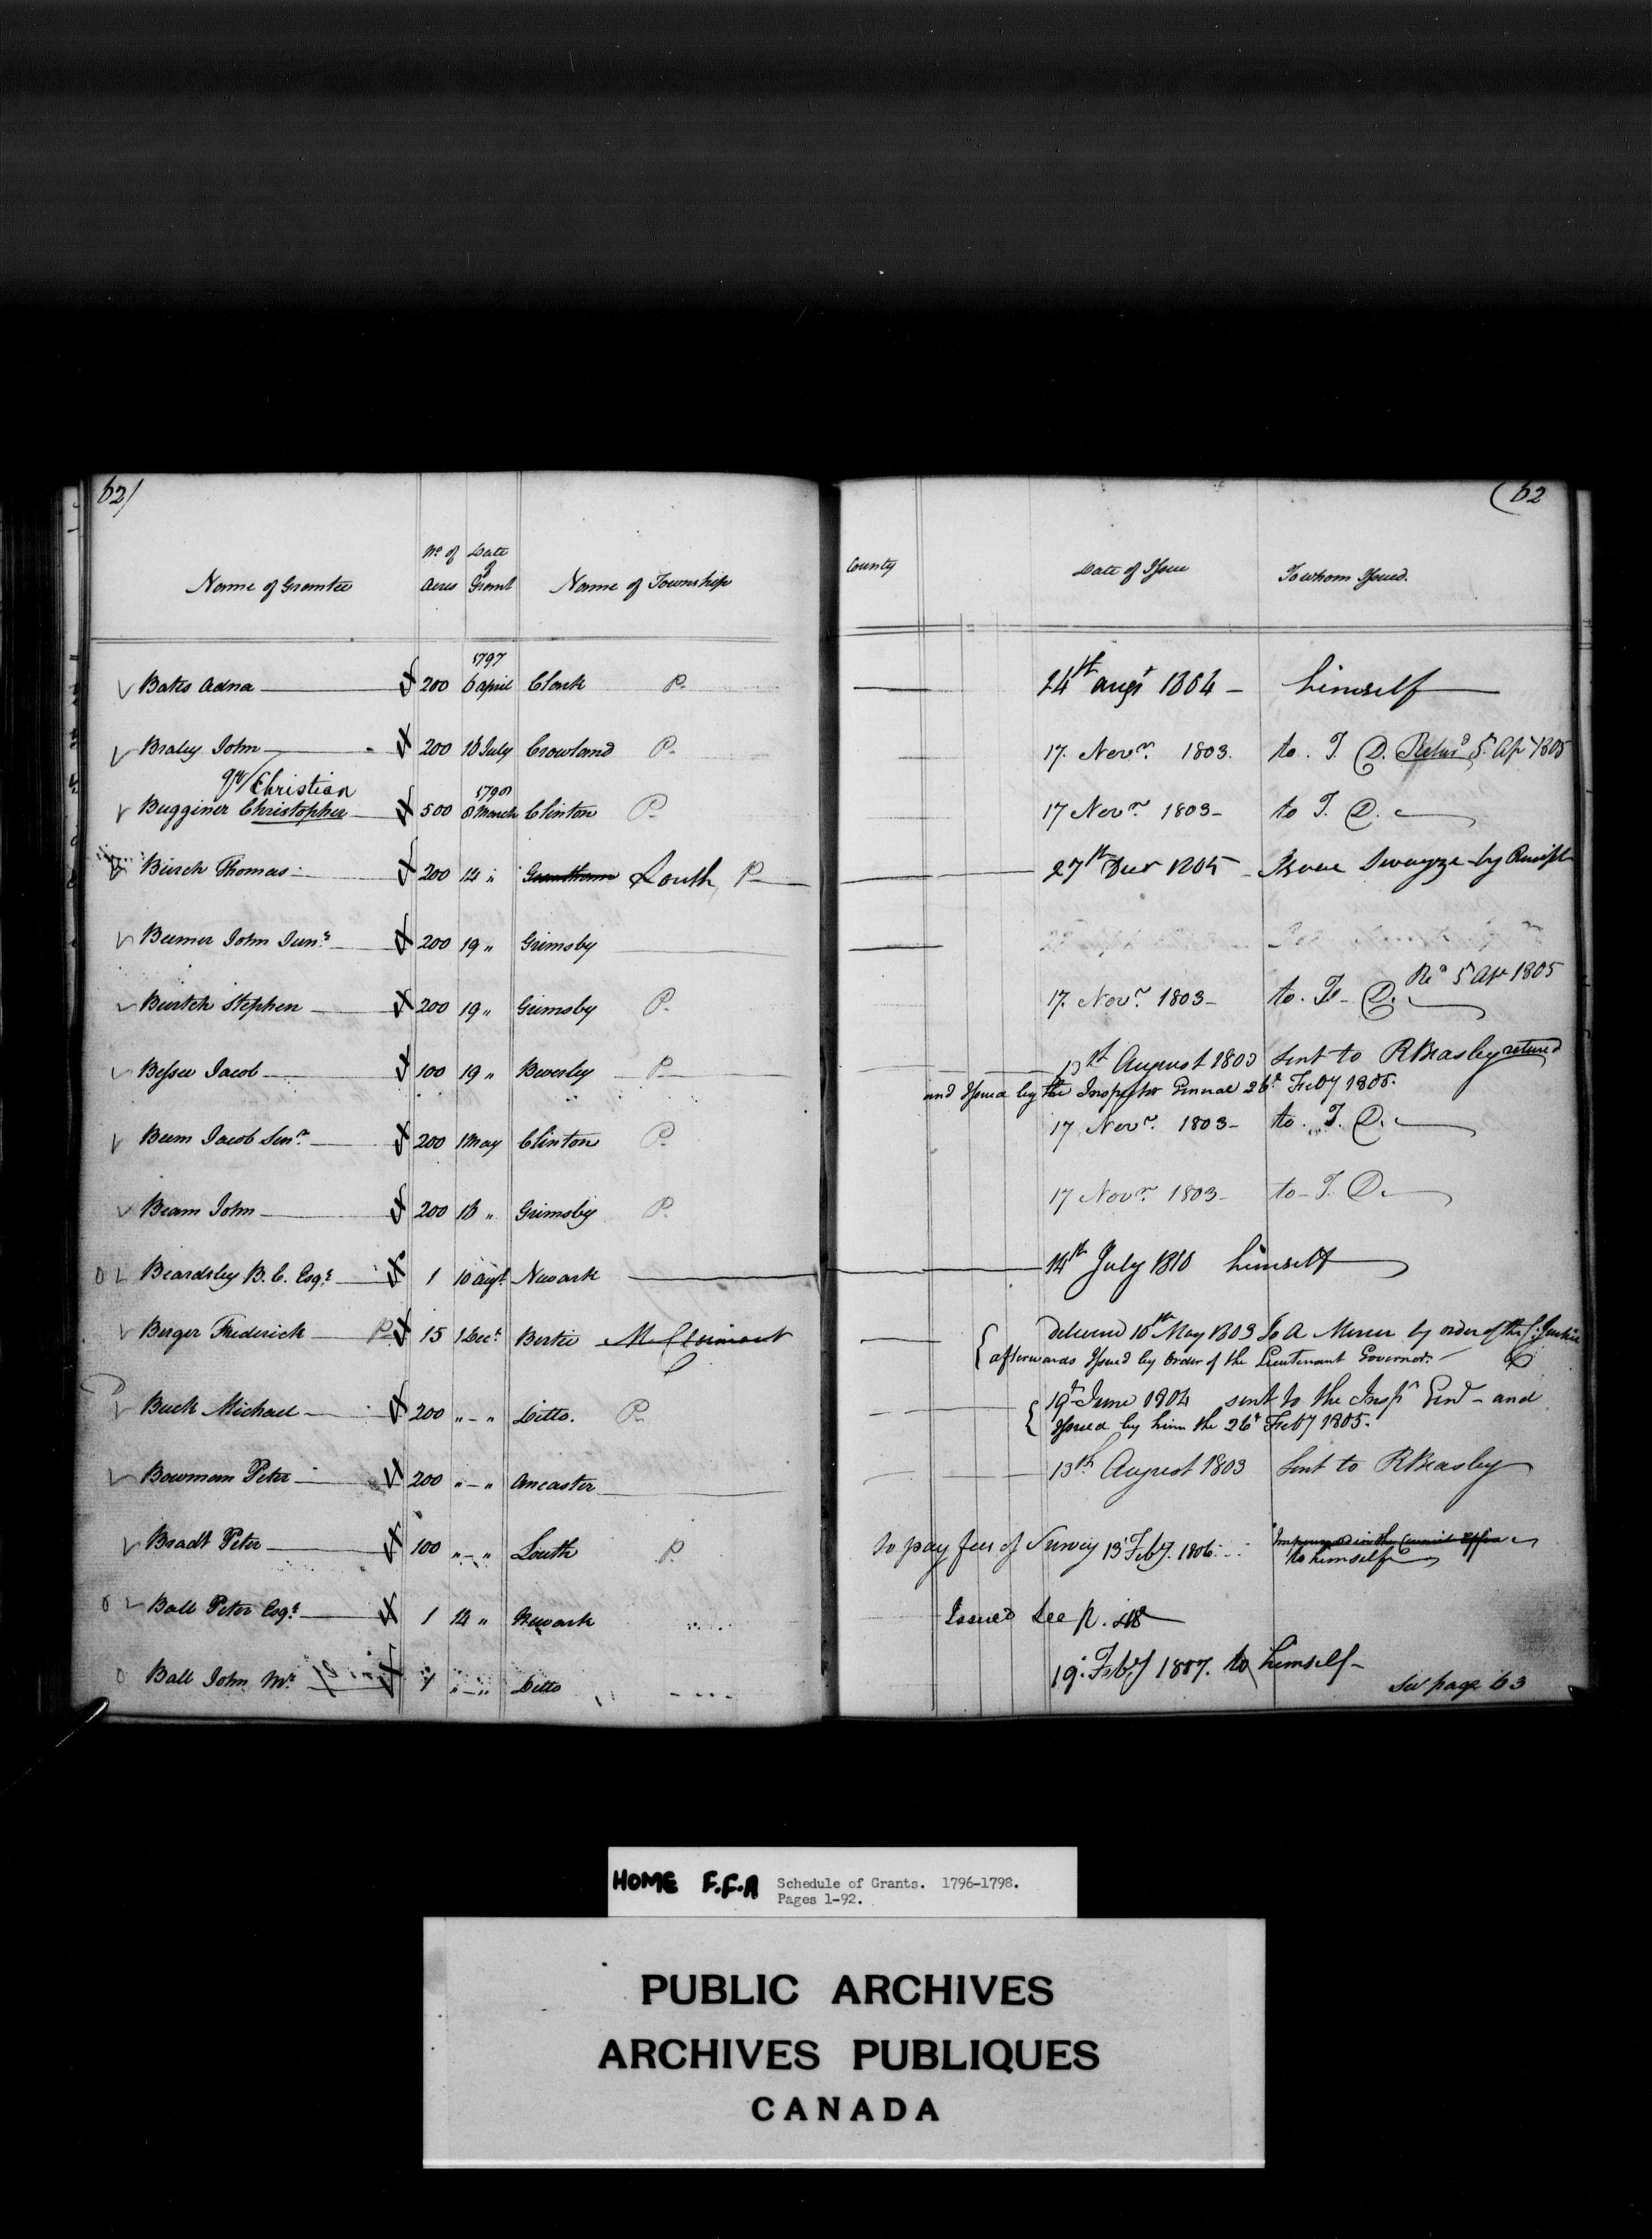 62/ (62
No of Date
of
Name of Grantee Acres Grant Name of Township County Date of Issue To whom Issued.
1797
Bates Adna 200 6 april Clark P. 24th augt 1804 himself
Braley John 200 16 July Crowland P. 17. Novr. 1803. to. T. D. Retur'd 5 Ap 1805
qu/Christian
1798
Bugginer Christopher 500 8 March Clinton P. 17 Novr. 1803 to T. D.
Burch Thomas 200 14 " Grantham Louth P 27th Decr 1805 Isaac Swayze by Receipt
Beemer John Junr. 200 19 " Grimsby
Re'd 5 Apr 1805
Burtch Stephen 200 19 " Grimsby P. 17. Novr. 1803 to. T. D.
Bessee Jacob 100 19 " Beverley P 13th August 1803 Sent to R Beasley returned
and Issued by the Inspector General 26th Feby 1805.
Beem Jacob Senr. 200 1 May Clinton P. 17 Novr. 1803 to. T. D.
Beam John 200 16 " Grimsby P. 17 Novr. 1803 to T. D.
Beardsley B. C. Esqr. 1 10 augt. Newark 14th July 1810 himself
Berger Frederick P. 15 1 Decr. Bertie Delivered 10th May 1803 to A Mercer by order of the C. Justice
afterwards Issued by order of the Lieutenant Governor.
Buck Michael 200 " - " Ditto. P. 19th June 1804 sent to the Inspr Genl - and
Issued by him the 26th Feby 1805.
Bowman Peter 200 " - " Ancaster 13th August 1803 Sent to R Beasley
Bradt Peter 100 " - " Louth P. to pay fees of Survey 13 Feby. 1806. to himself
Ball Peter Esqr. 1 14 " Newark Issued See p. 48
Ball John Mr. 1 " - " Ditto 19. Feby 1807. to himself
See page 63
HOME F.F.A Schedule of Grants. 1796-1798.
Pages 1-92.
PUBLIC ARCHIVES
ARCHIVES PUBLIQUES
CANADA